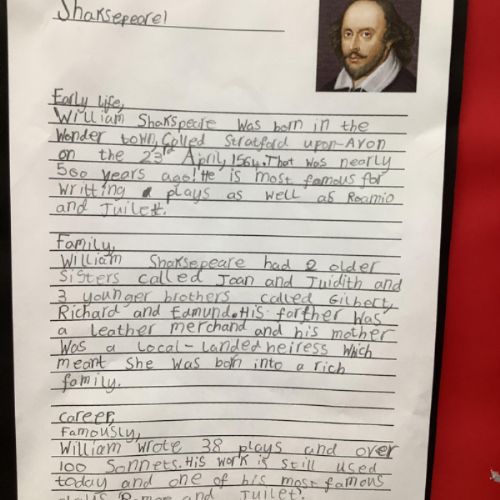 Shaksepeare!
Early life,
William Shakspeare was born in the
wonder town, Called Stratford upon-Avon
on the 23rd April 1564. That was nearly
500 years ago! He is most famous for
writting plays as well as Roamio
and Juilett.
Family,
William Shaksepeare had 2 older
Sisters called Joan and Juidith and
3 younger brothers called Gilbert,
Richard and Edmund. His farther was
a leather merchand and his mother
was a local-landed heiress which
meant she was born into a rich
family.
career,
Famously,
William wrote 38 plays and over
100 Sonnets. His work is still used
today and one of his most famous
plays Romeo and Juilet.